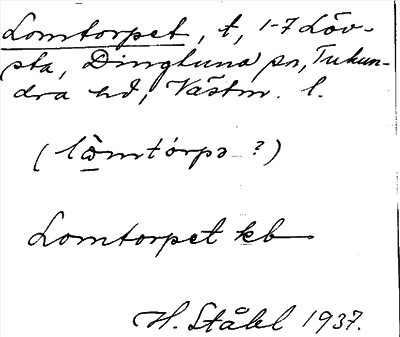 Lomtorpet, t, 1-7 Löv-
sta, Dingtuna sn, Tuhun-
dra hd, Västm. l.
(lòmtórpə ?)
Lomtorpet kb
H. Ståhl 1937.